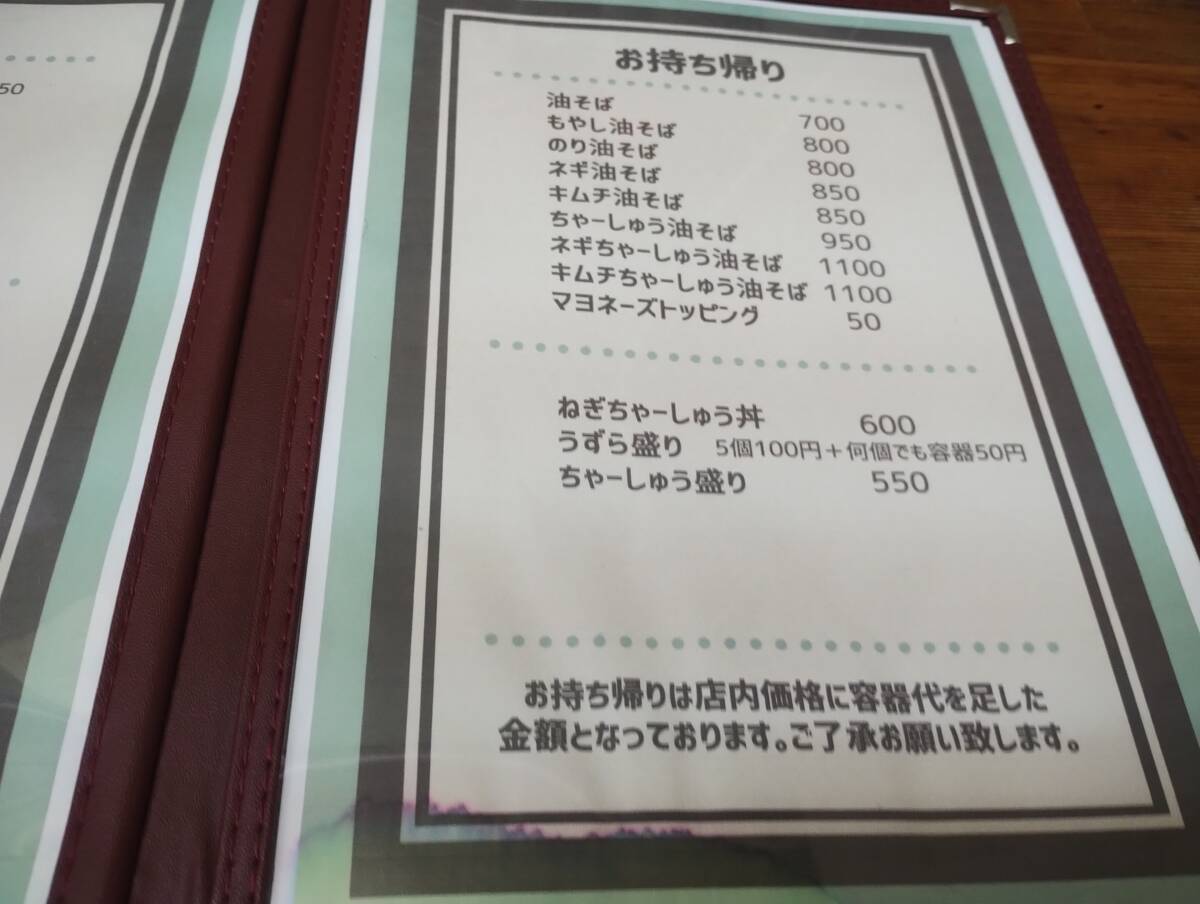 50
お持ち帰り
油そば 700
もやし油そば 800
のり油そば 800
ネギ油そば 850
キムチ油そば 850
ちゃーしゅう油そば 950
ネギちゃーしゅう油そば 1100
キムチちゃーしゅう油そば 1100
マヨネーズトッピング 50
ねぎちゃーしゅう丼 600
うずら盛り 5個100円+何個でも容器50円
ちゃーしゅう盛り 550
お持ち帰りは店内価格に容器代を足した
金額となっております。ご了承お願い致します。